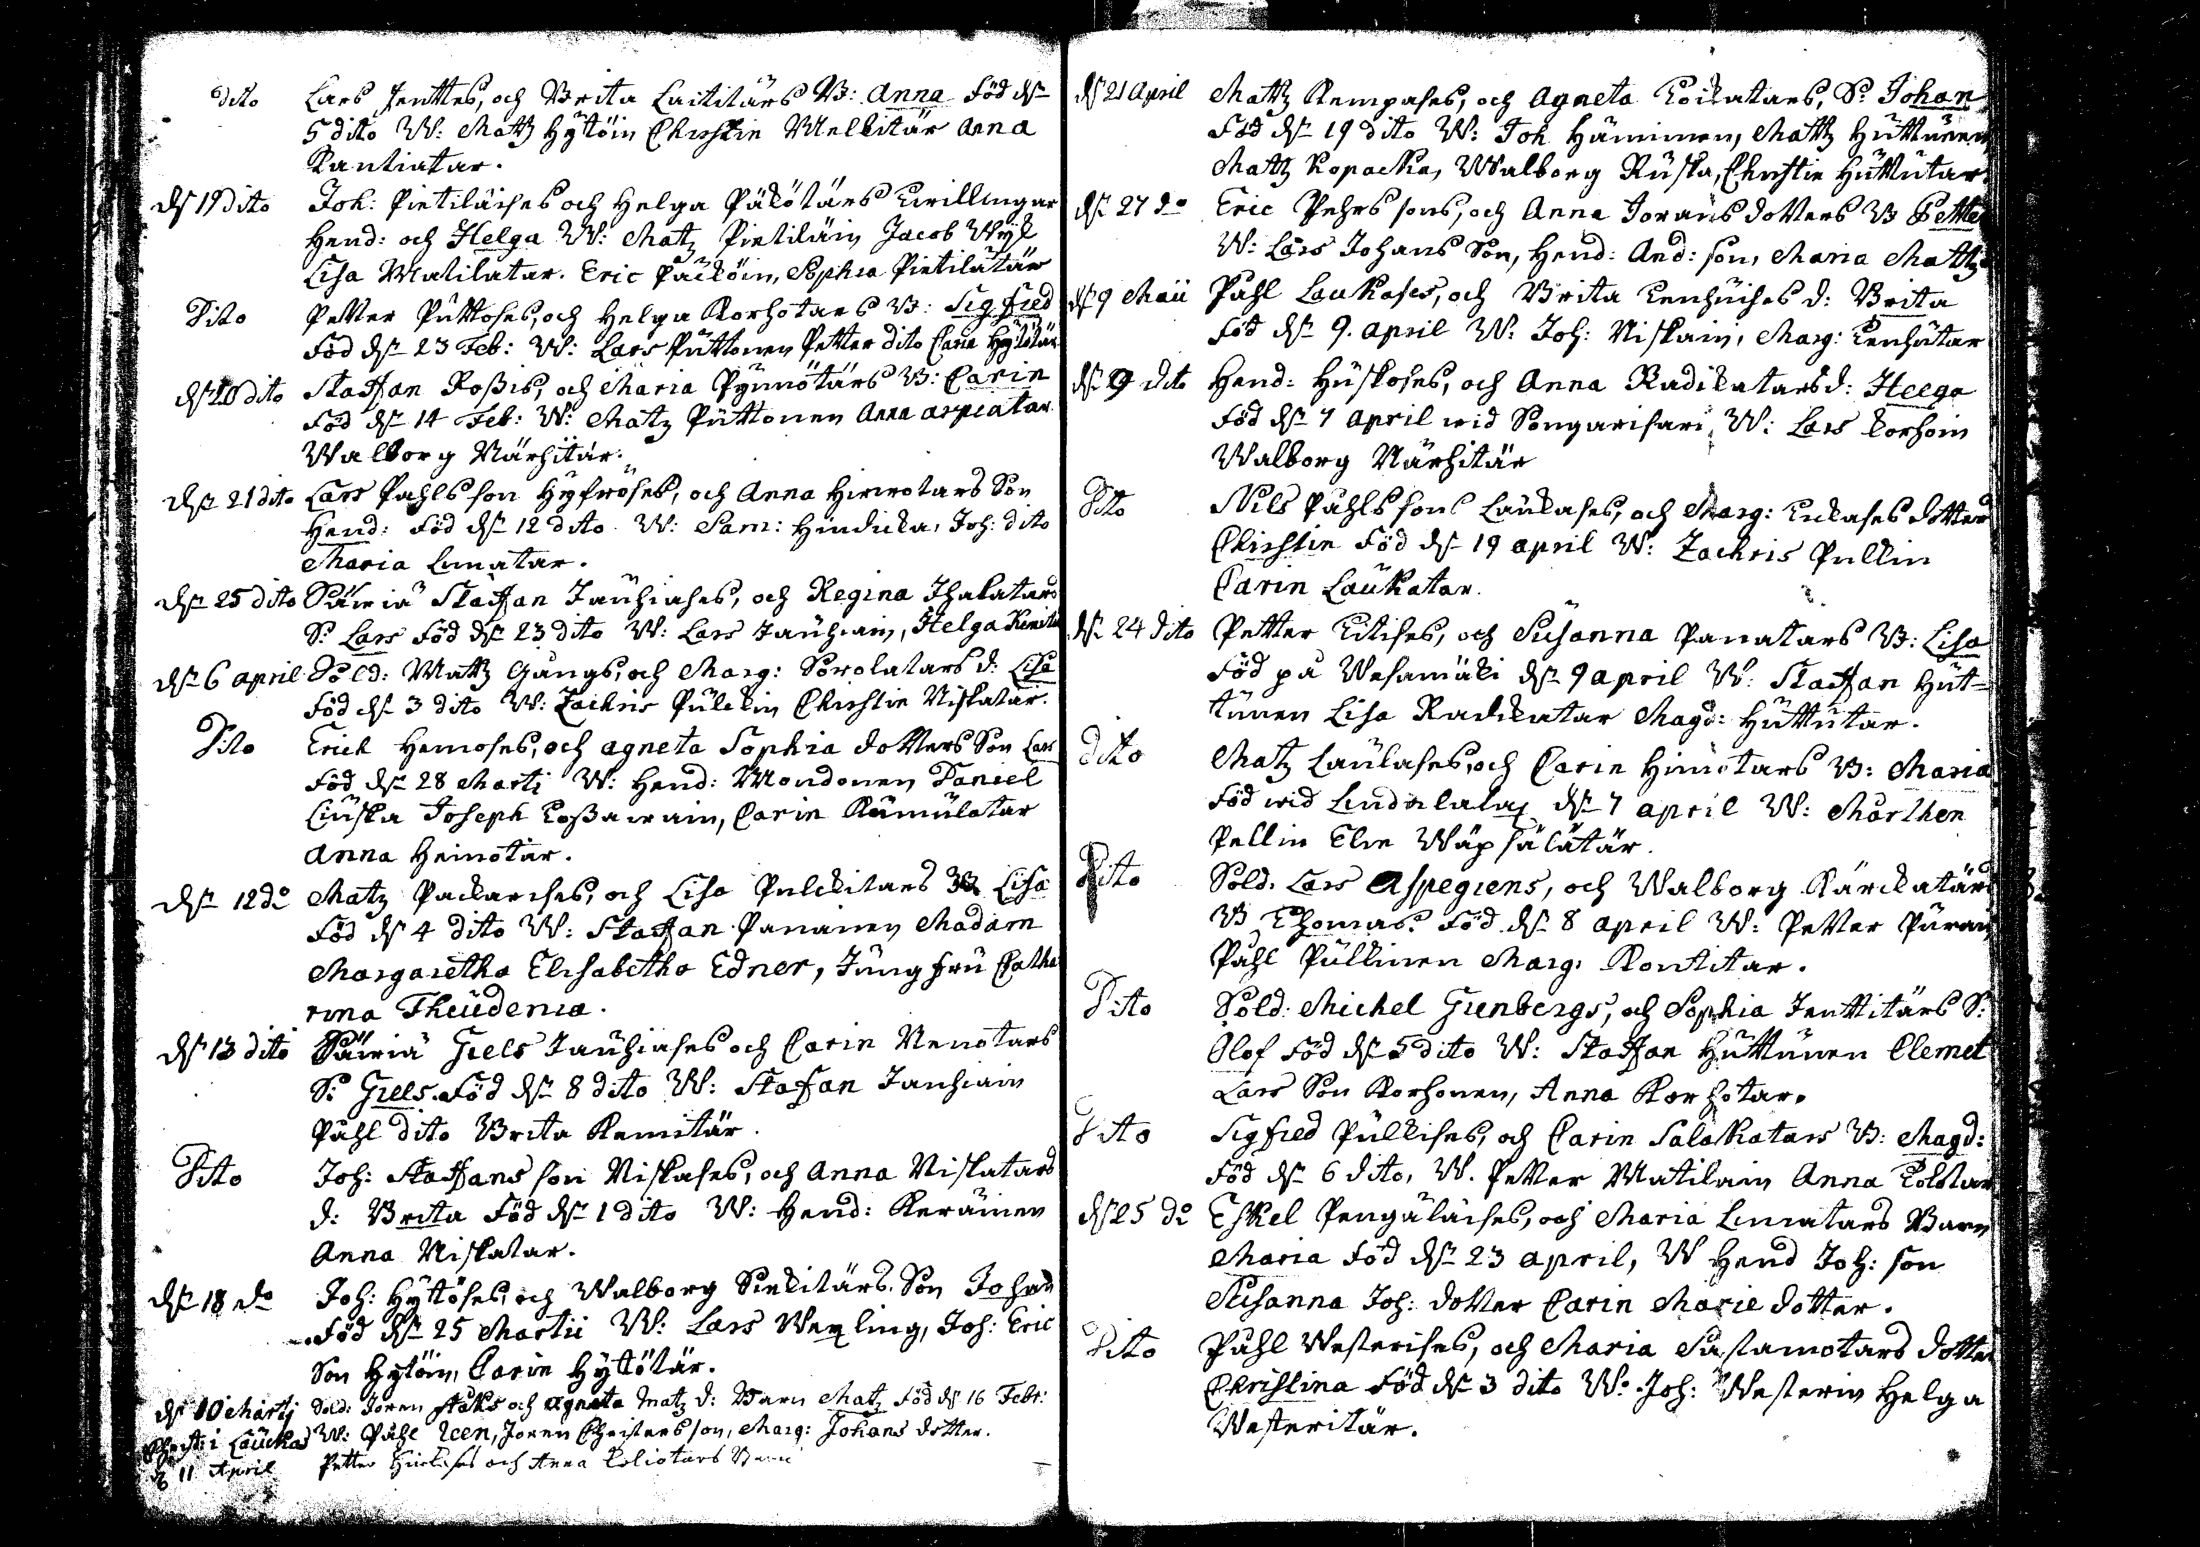 dito Lars Jenttes, och Brita Laititärs B: Anna Föd dn
5 dito W: Mattz Hÿtöin Christin Mulkitär Anna
Rantiatar.
dn 19 dito Joh: Pietiläises och Helga Päkötärs twillingar
Hend: och Helga W: Matz Pietiläin Jacob Wÿk
Lisa Matilatar. Eric Päcköin, Sophia Pietilätär
Dito Petter Puttoses, och Helga Korhotars B: Sigfred
Föd dn 23 Feb: W: Lars Puttonen Petter dito Carin Hÿtötär
dn 20 dito Staffan Roßis, och Maria Pÿnnötärs B: Carin
Föd dn 14 Feb: W: Matz Puttonen Anna aspiatar
Walborg Närhitär.
dn 21 dito Lars Pahls son Hÿfröses, och Anna Hirwotars Son
Hend: Föd dn 12 dito W: Sam: Hindicka, Joh: dito
Maria Limatar.
dn 25 dito Säiriä Staffan Jauhiases, och Regina Ihalatars
S: Lars Föd dn 23 dito W: Lars Jauhiain, Helga
dn 6 april Sold: Mattz Gångs, och Marg: Sorolatars d: Lisa
Föd dn 3 dito W: Zachris Pulckin Christin Niskatar.
Dito Erich Hemoses, och agneta Sophia dotters Son Lars
Föd dn 28 Marti W: Hend: Mondonen Daniel
Liuska Joseph Koßawain, Carin Kämülatar
Anna Heinotar.
dn 12 do Matz Packarises, och Lisa Pulckitars B Lisa
Föd dn 4 dito W: Staffan Pananen Madam
Margaretha Elisabetha Edner, Jungfru Catha
rina Theudenia.
dn 13 dito Säiriä Giels Jauhiases och Carin Nenotars
S: Giels. Föd dn 8 dito W: Staffan Jauhiain
Påhl dito Brita Remitär.
Dito Joh: Staffans son Niskases, och Anna Niskatars
d: Brita Föd dn 1 dito W: Hend: Keräinen
Anna Niskatar.
dn 18 do Joh: Hÿttöses, och Walborg Sirkitärs Son Johan
Föd dn 25 Martii W: Lars Wexling, Joh: Eric
Son Hÿtöin, Carin Hÿttötär.
dn 10 Martj Sold: Jören Staks och agneta Matz d: Barn Matz Föd dn 16 Febr:
i Lauckas W: Påhl Reen, Joren Christers son, Marg: Johans dotter.
d 11 April Petter och Anna Koliotars Barn
dn 21 April Mattz Kempases, och Agneta Koikatars, S: Johan
Föd dn 19 dito W: Joh Häminen, Mattz Huttunen
Mattz Kopacka, Walborg Ruska, Christin Huttutar.
dn 27 do Eric Pehrs sons, och Anna Jorans dotters B Petter
W: Lars Johans Son, Hend: And: son, Maria Mattz
dn 9 Maii Påhl Laukases, och Brita Kenhuises d: Brita
Föd dn 9. april W: Joh: Niskain, Marg: Kenhutar
dn 9 dito Hend: Huskoses, och Anna Radikatars d: Helga
Föd dn 7 april wid Songarisari, W: Lars korhoin
Walborg Närhitär
Dito Nils Påhls sons Laukases, och Marg: Kukases dotter
Christin Föd dn 19 april W: Zachris Pulkin
Carin Laukatar.
dn 24 dito Petter Kitises, och Susanna Panatars B: Lisa
Föd på Wesamäki dn 9 april W: Staffan Hut=
tunen Lisa Radikatar Magd: Huttutar.
dito Matz Laukases, och Carin Himotars B: Maria
Föd wid Lindulalax dn 7 april W: Mårthen
Pellin Elin Wäpsälätär.
Dito Sold. Lars Aspegrens, och Walborg Kärckatärs
B Thomas. Föd dn 8 april W: Petter Puran
Påhl Pullinen Marg: Kontitar.
Dito Sold: Michel Grenbergs, och Sophia Jenttitärs S:
Olof Föd dn 5 dito W: Staffan Huttunen Clemet
Lars Son Korhonen, Anna Korhotar.
Dito Sigfred Pulkises, och Carin Salakatars B: Magd:
Föd dn 6 dito, W. Petter Matilain Anna
dn 25 do Eskel Pengäläises, och Maria Limatars Barn
Maria Föd dn 23 april, W Hend Joh: son
Susanna Joh: dotter Carin Marie dotter.
Dito Påhl Westerises, och Maria Sastamotars dotter
Christina Föd dn 3 dito W: Joh: Westerin Helga
Westeritär.